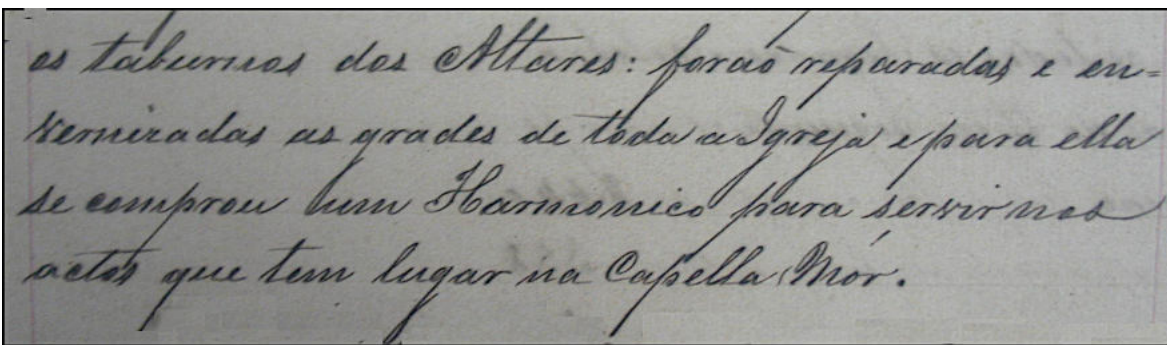 os taburnos dos Altares: forão reparadas e en=
vernizadas as grades de toda a Igreja e para ella
se comprou hum Harmonico para servir nos
actos que tem lugar na Capella Mór.